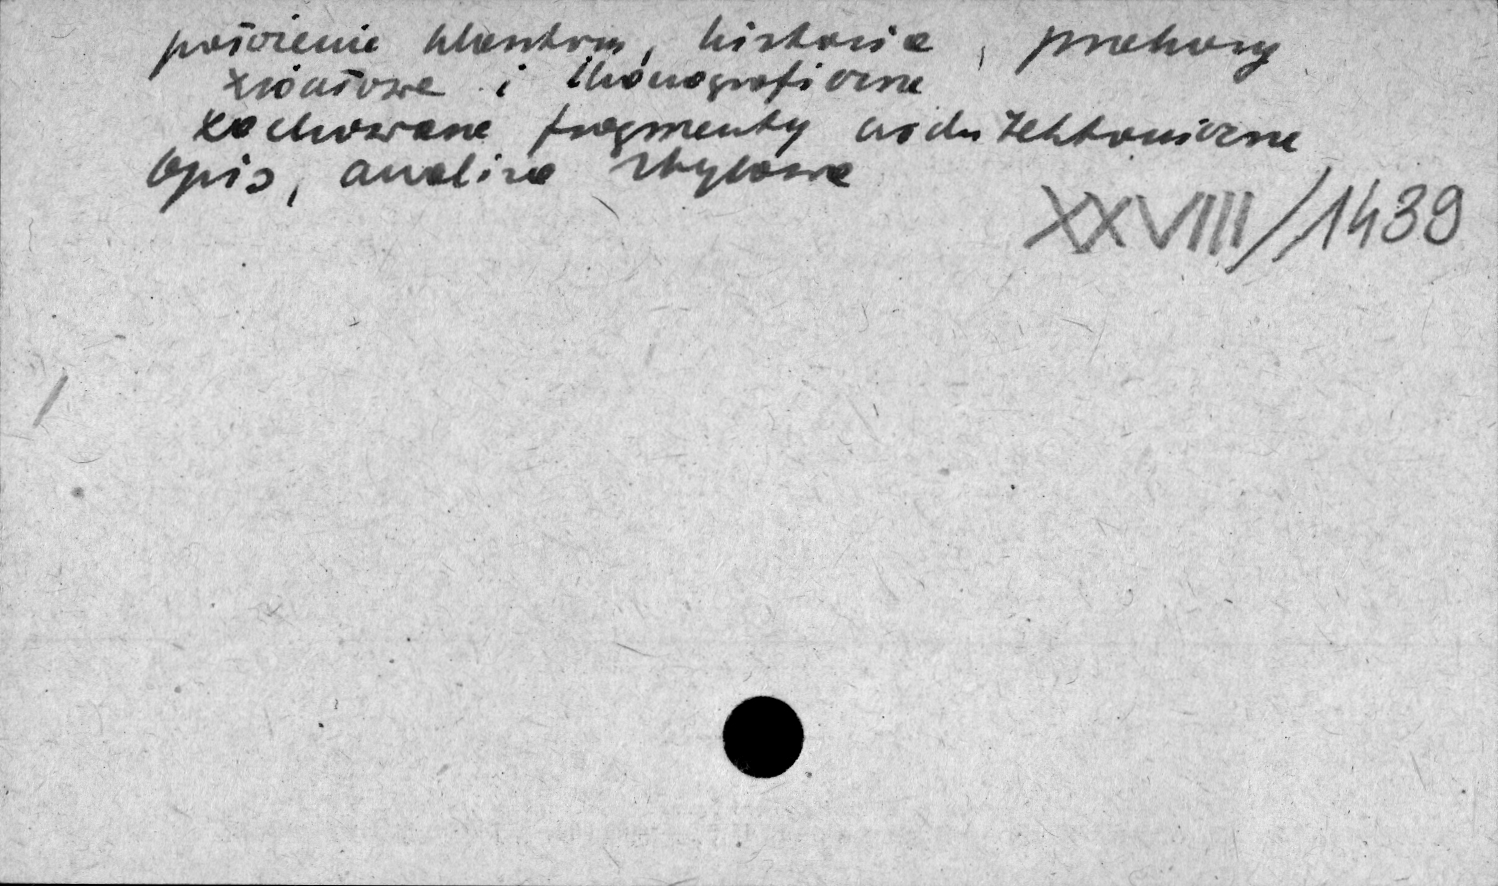 położenie klasztoru, historia, przekazy
źródłowe i ikonograficzne
zachowane fragmenty architektoniczne
opis, analiza stylowa
XXVIII/1439